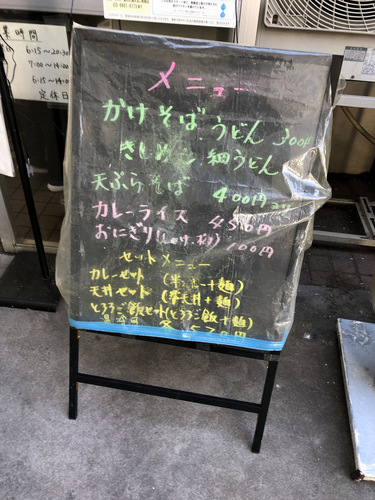 業時間
6:15〜20:30
7:00〜14:00
6:15〜14:0
定休日
メニュー
かけそば うどん 300円
きしめん 細うどん
天ぷらそば 400円
カレーライス 450円
おにぎり 100円
セットメニュー
カレーセット (半カレー+麺)
天丼セット (半天丼+麺)
とろろご飯セット(とろろご飯+麺)
各570円